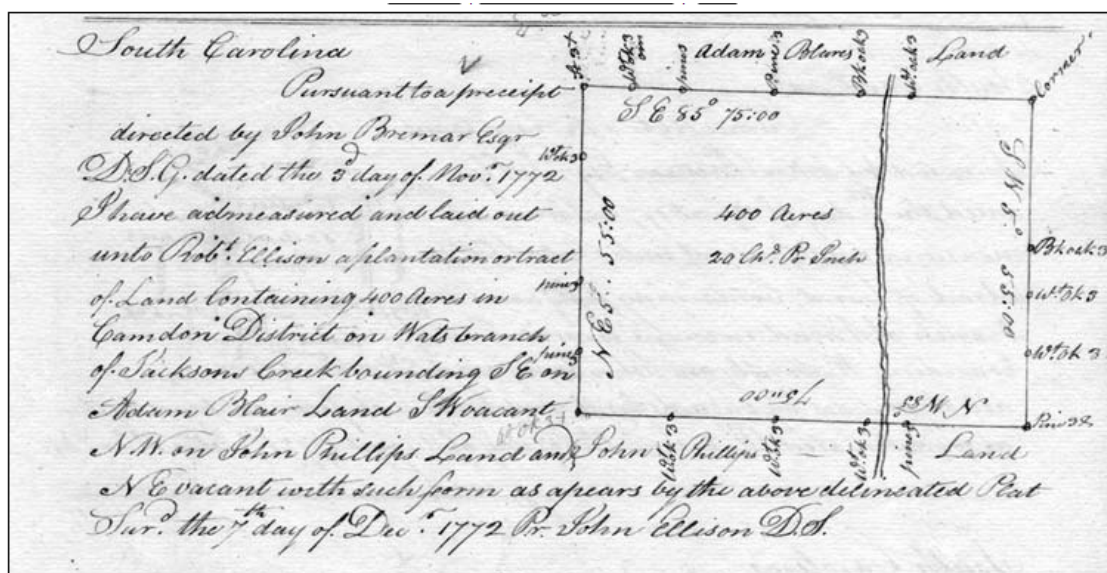 South Carolina
Pursuant to a precept
directed by John Bremar Esqr
D. S. G. dated the 3d day of Novr. 1772
I have admeasured and laid out
unto Robt. Ellison a plantation or tract
of Land Containing 400 Acres in
Camdon District on Wats branch
of Jacksons Creek bounding S E on
Adam Blair Land S W vacant
N. W. on John Phillips Land and
N E vacant with such form as apears by the above delineated Plat
Surd. the 7th day of Decr. 1772 Pr. John Ellison D. S.
Adam Blares Land
pine 3
Pine 3
Bkoak 3
Wt. oak 3
Corner
S E 85° 75:00
Wt. ok 3
N E 5°. 55:00
pine 3
pine 3
400 Acres
20 Chs. Pr Inch
S W 5°. 55:00
Bkoak 3
Wt. ok 3
Wt. ok 3
75"00
N W 85°
John Phillips Land
Wt. ok 3
Wt. ok 3
Wt. ok 3
pine 3